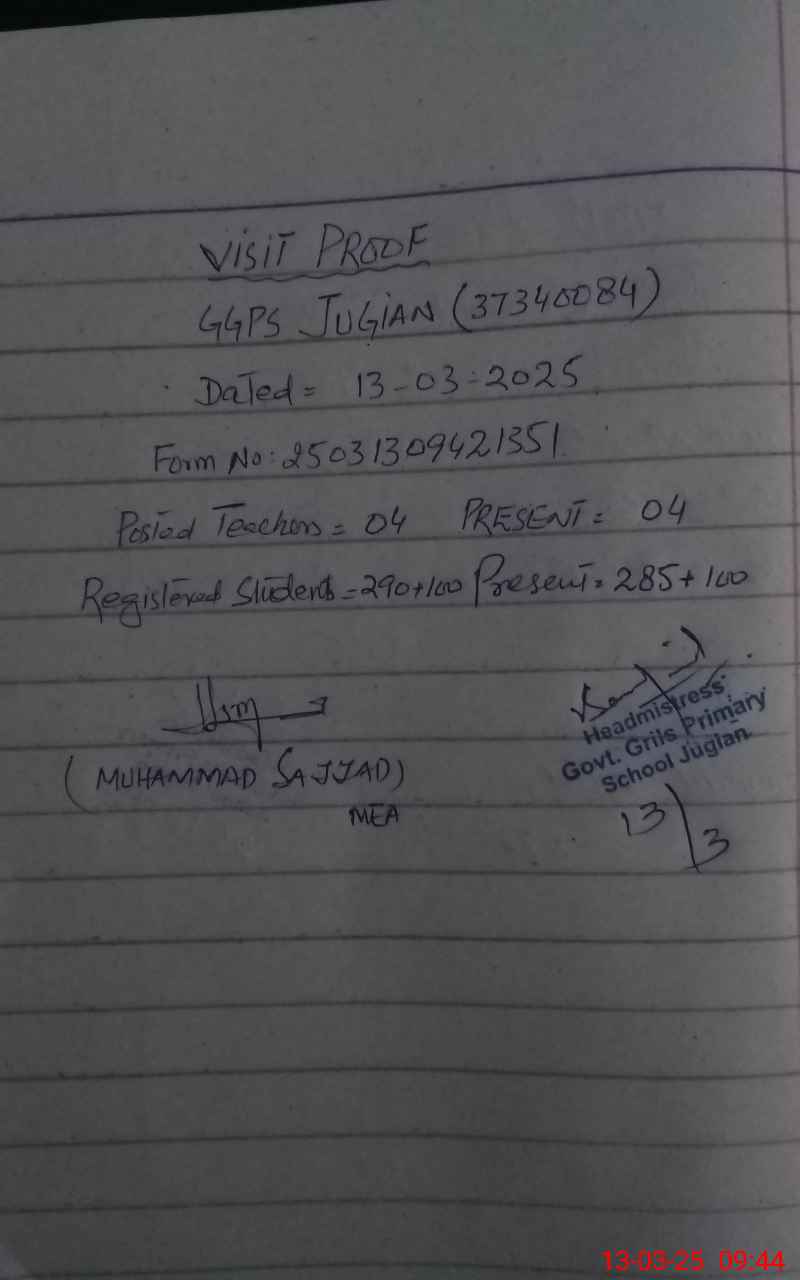 VISIT PROOF
GGPS JUGIAN (37340084)
Dated = 13-03-2025
Form No: 25031309421351
Posted Teachers = 04 PRESENT = 04
Registered Students = 290+100 Present = 285+100
(MUHAMMAD SAJJAD)
MEA
Headmistress
Govt. Grils Primary
School Jugian
13/3
13-03-25 09:44